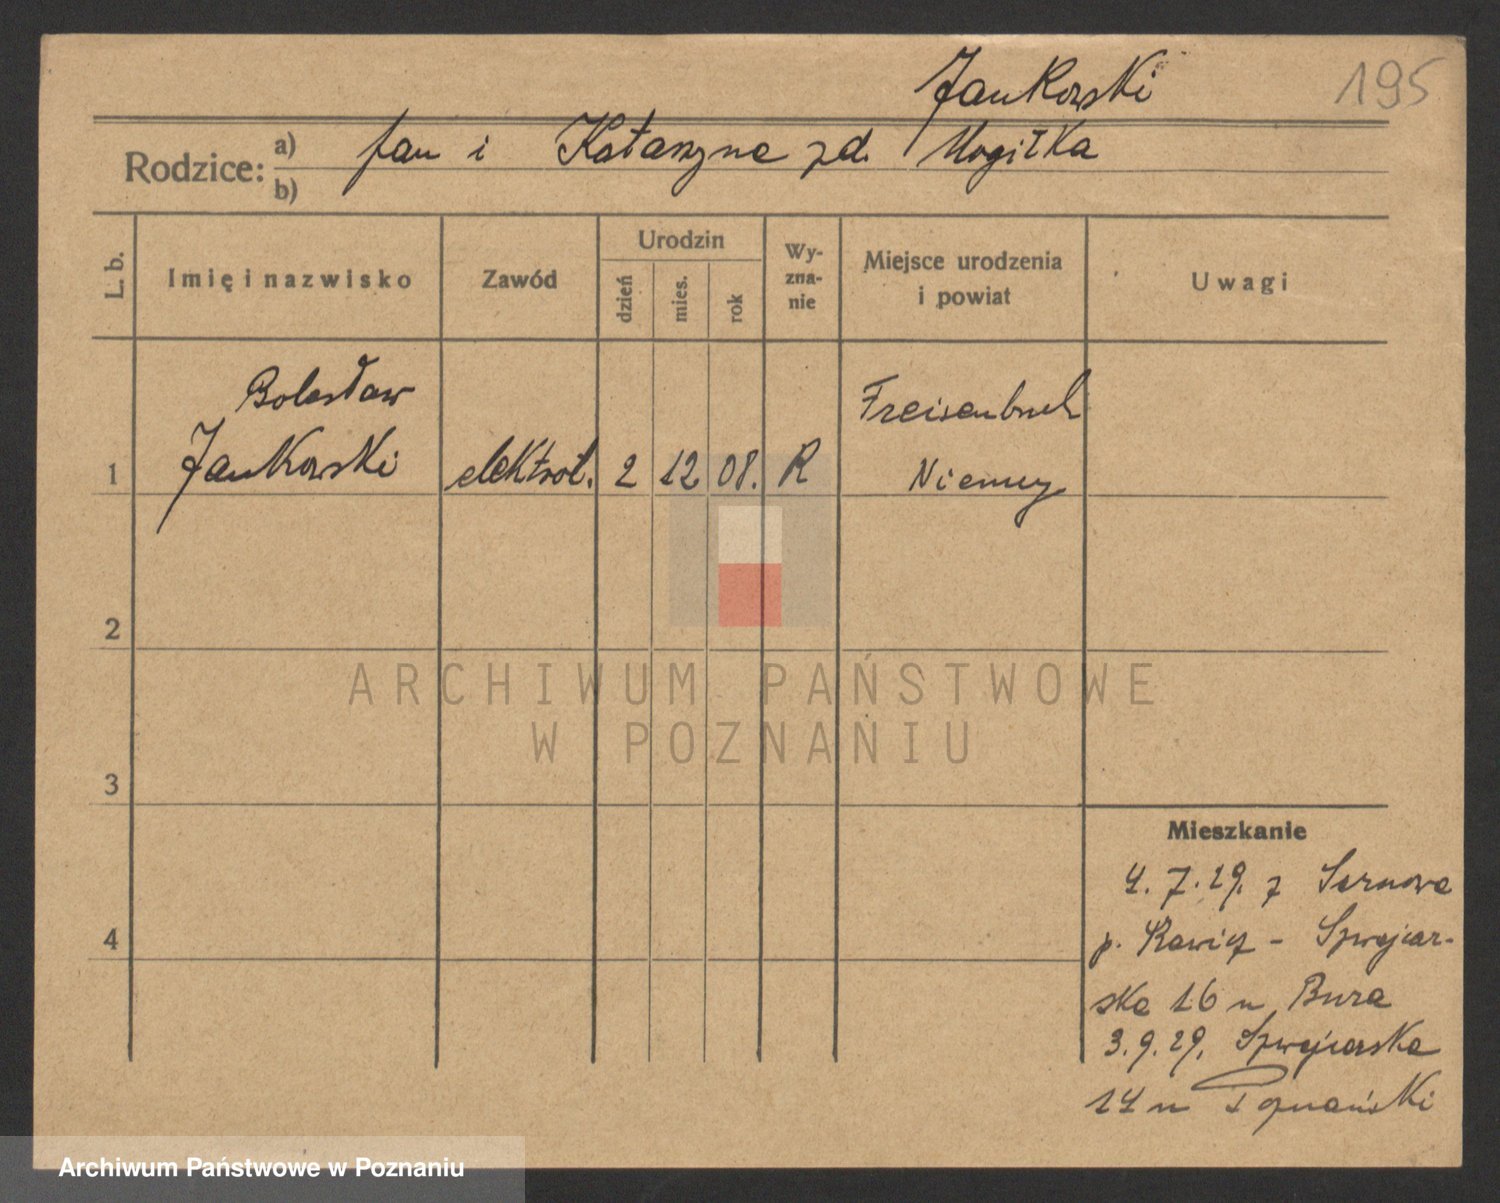 Jankowski
195
Rodzice: a) Jan i Katarzyna zd. Mogiłka
b)
L. b.
Imię i nazwisko
Zawód
Urodzin
dzień
mies.
rok
Wy-
zna-
nie
Miejsce urodzenia
i powiat
Uwagi
Bolesław
Jankowski
elektrot.
2
12
08.
R
Freisenbruch
Niemcy
1
2
3
4
Mieszkanie
4.7.29. z Sarnowa
p. Rawicz - Szwajcar-
ska 16 u Bura
3.9.29. Szwajcarska
14 u Poznański
ARCHIWUM PAŃSTWOWE
W POZNANIU
Archiwum Państwowe w Poznaniu